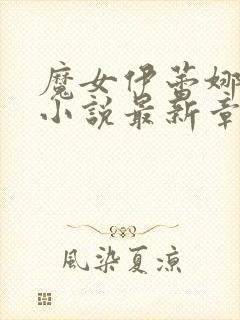 魔女伊蕾娜
小說最新章
風染夏凉